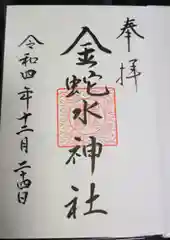 奉拝
金蛇水神社
令和四年十二月二十四日